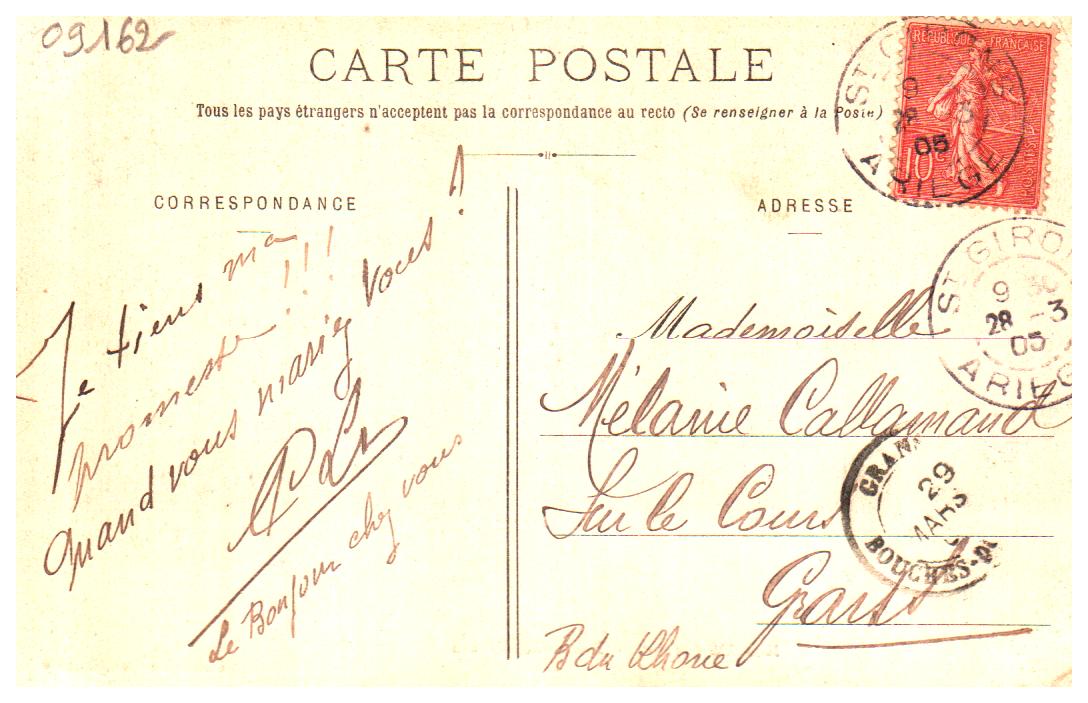 09162
CARTE POSTALE
Tous les pays étrangers n'acceptent pas la correspondance au recto (Se renseigner à la Poste)
CORRESPONDANCE
Je tiens ma
promesse !!!
Quand vous mariez vous !
Le Bonjour chez vous
REPUBLIQUE FRANÇAISE
POSTES
10c
ST GIRONS
28
05
ARIEGE
ADRESSE
ST GIRONS
9 30
28 -3
05
ARIEGE
Mademoiselle
Mélanie Callamand
Sur le Cours
Grans
B du Rhone
GRANS
29
MARS
BOUCHES-DU